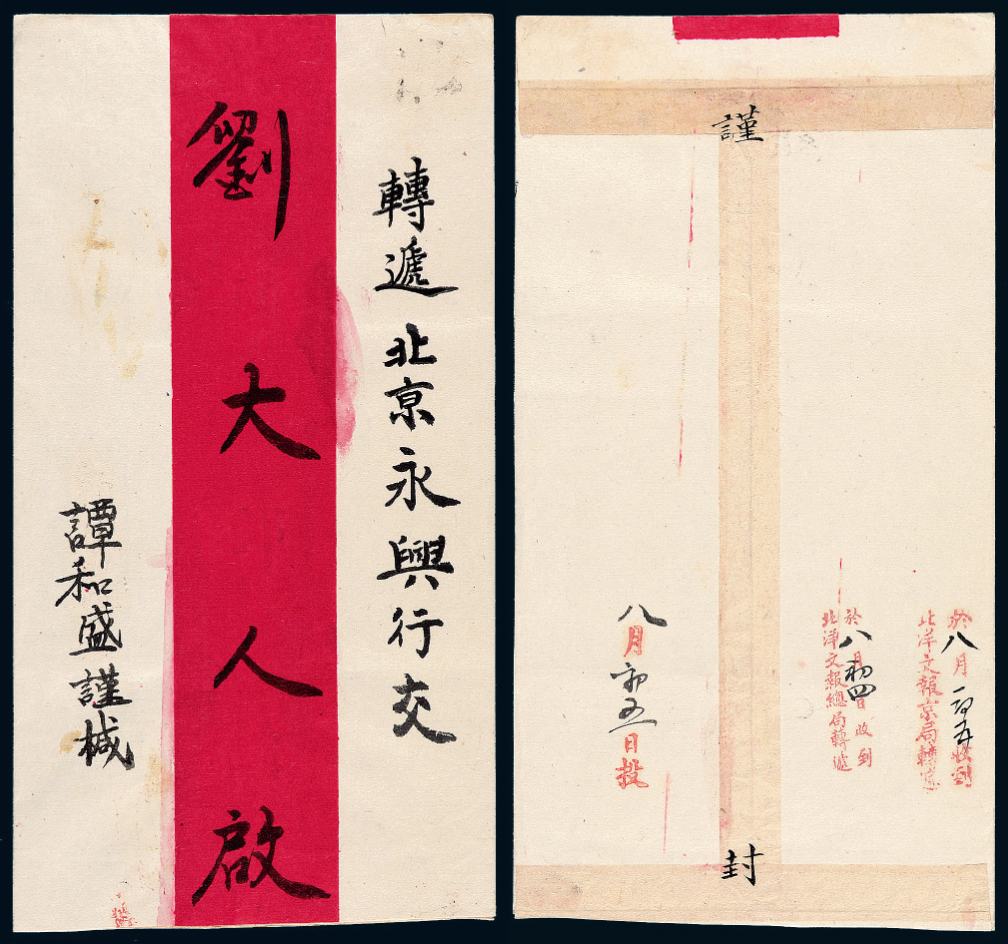 轉遞北京永興行交
劉大人啟
譚和盛謹椷
謹
封
於八月初五收到
北洋文報京局轉遞
於八月初四日收到
北洋文報總局轉遞
八月初五日投